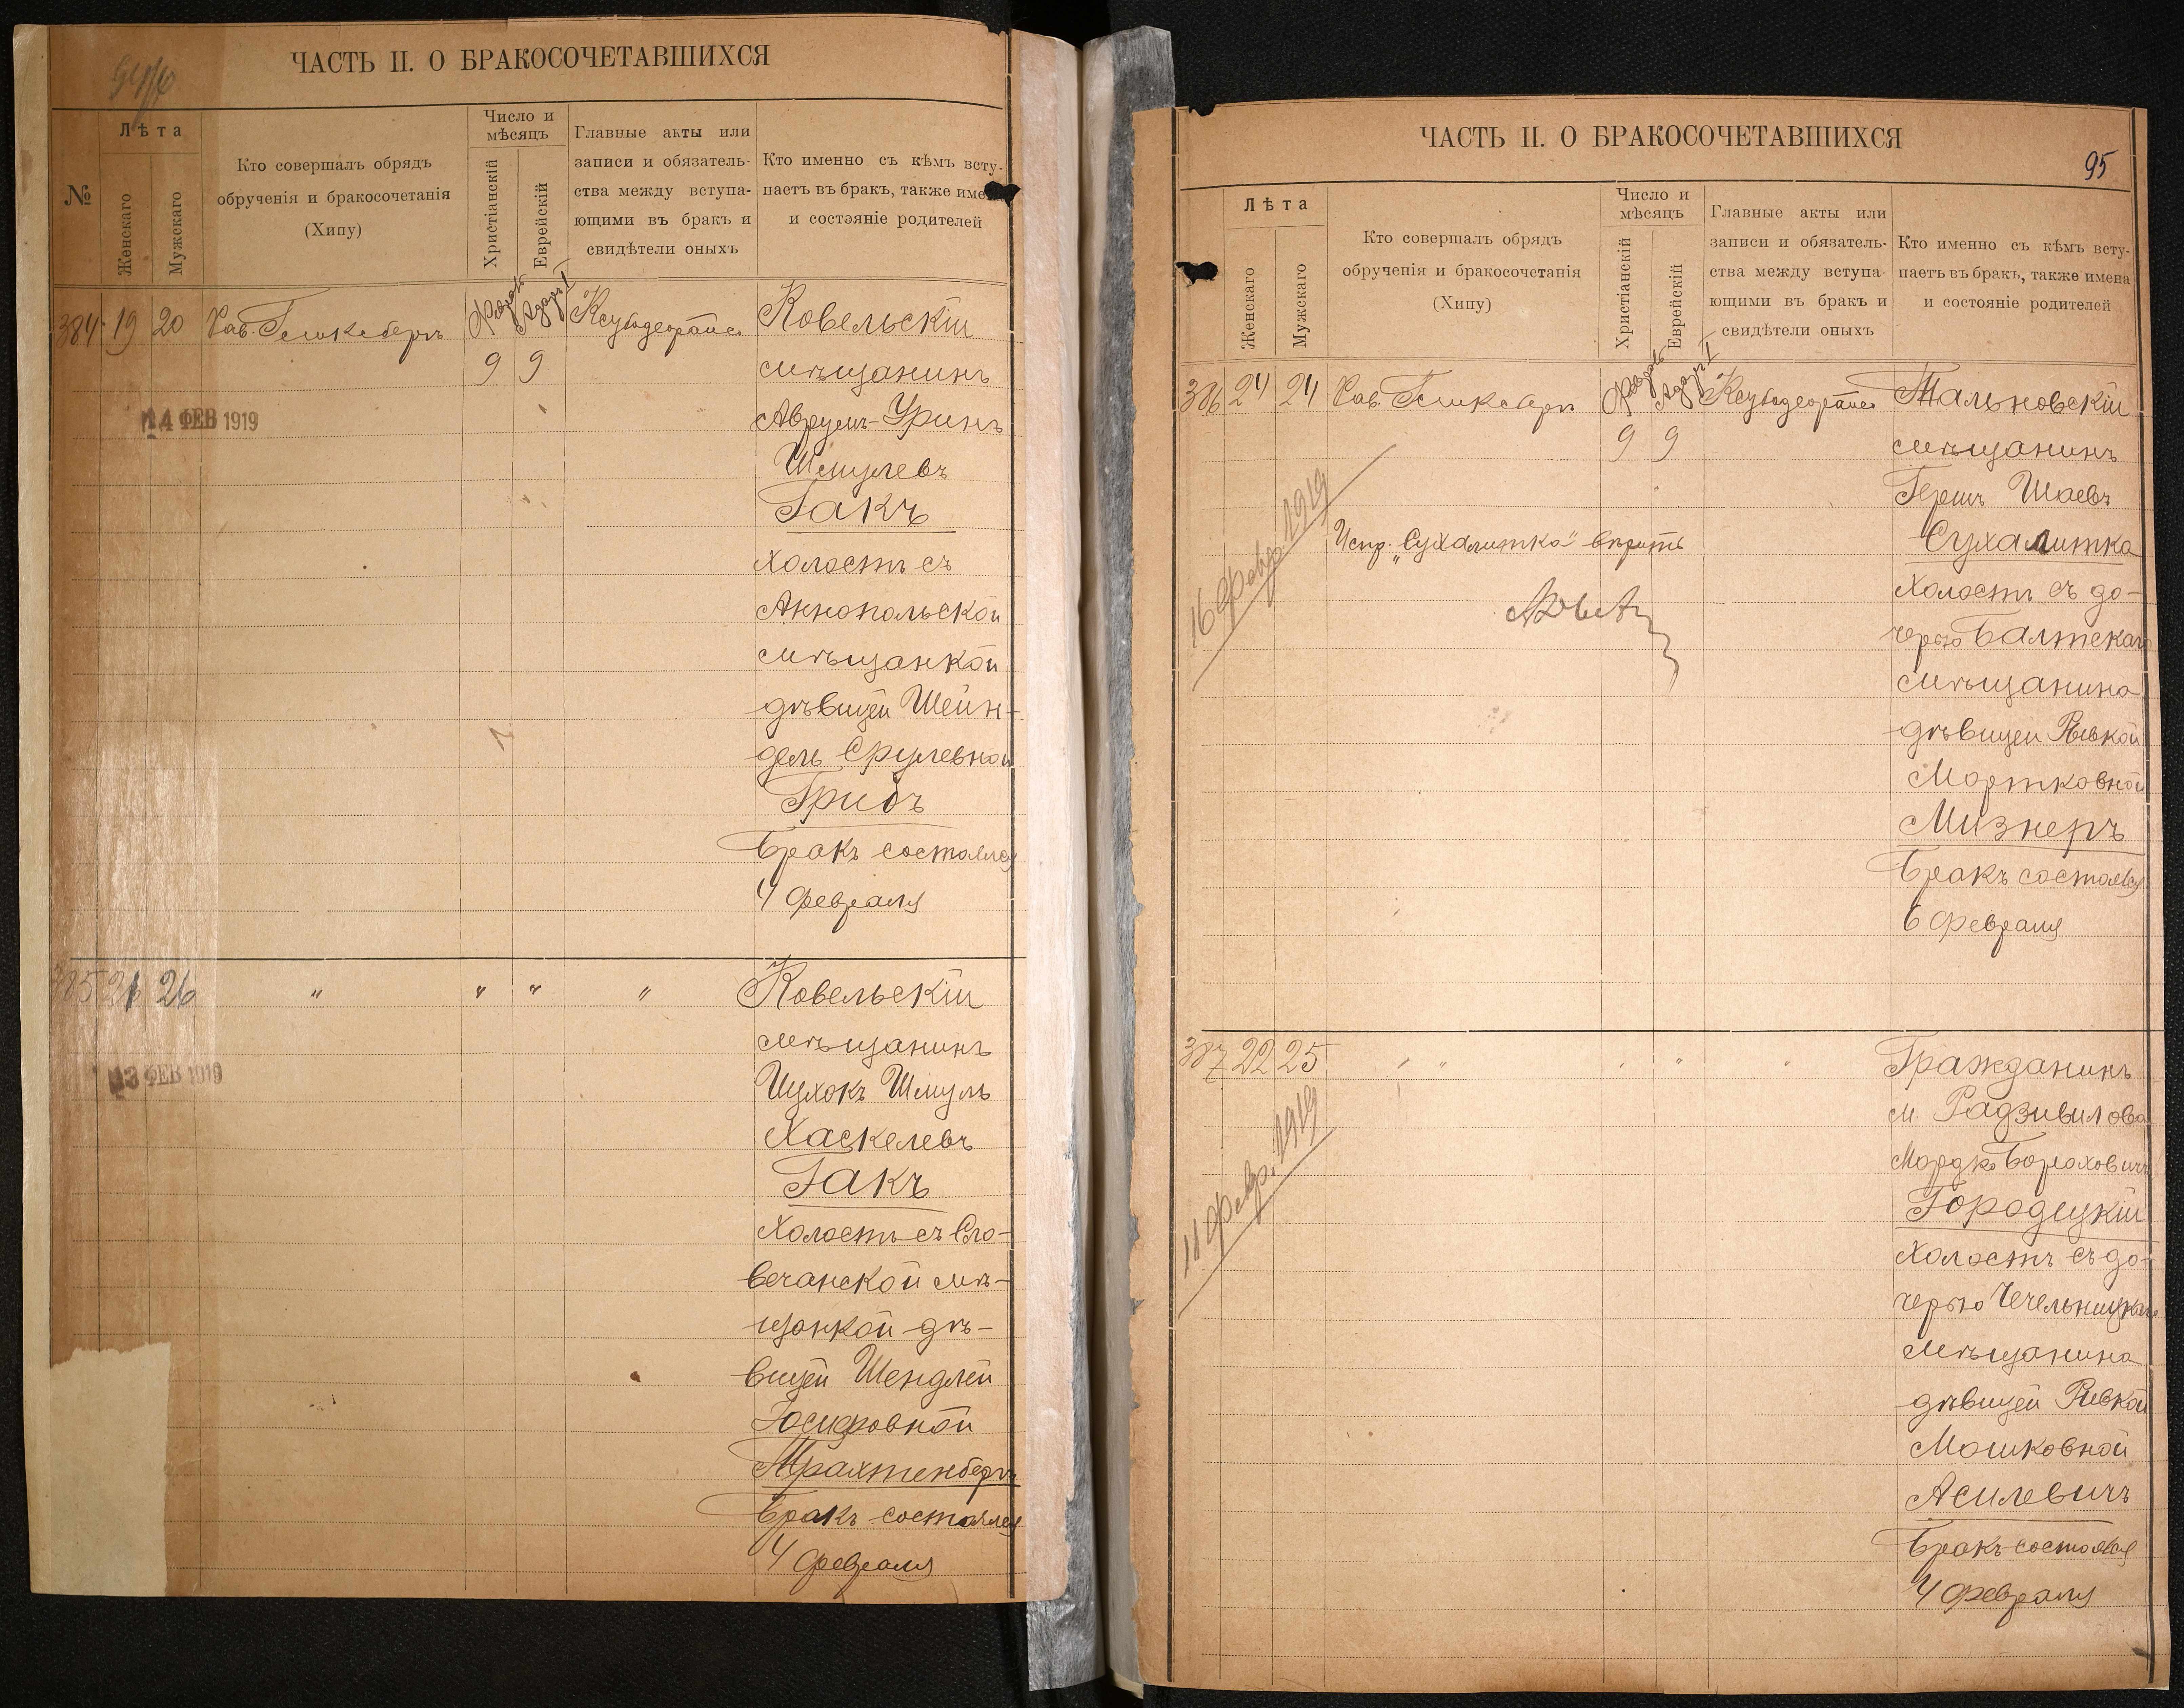 ЧАСТЬ II. О БРАКОСОЧЕТАВШИХСЯ
№
Лѣта
Женскаго
Мужскаго
Кто совершалъ обрядъ
обрученія и бракосочетанія
(Хипу)
Число и
мѣсяцъ
Христіанскій
Еврейскій
Главные акты или
записи и обязатель-
ства между вступа-
ющими въ бракъ и
свидѣтели оныхъ
Кто именно съ кѣмъ всту-
паетъ въ бракъ, также имена
и состояніе родителей
384 19 20 Февр. Адаръ I Ковельскій
9 9 мѣщанинъ
14 ФЕВ 1919 Аврумъ-Уринъ
Шмулевъ
Гакъ
холостъ съ
Аннопольской
мѣщанкой
дѣвицей Шейн-
дель Срулевной
Гридъ
Бракъ состоялся
4 февраля
385 21 26 " " " " Ковельскій
мѣщанинъ
13 ФЕВ 1919 Ицхокъ Шмуль
Хаскелевъ
Гакъ
холостъ съ Сло-
вечанской мѣ-
щанкой дѣ-
вицей Шендлей
Іосифовной
Трахтенбергъ
Бракъ состоялся
4 февраля
ЧАСТЬ II. О БРАКОСОЧЕТАВШИХСЯ
95
Лѣта
Женскаго
Мужскаго
Кто совершалъ обрядъ
обрученія и бракосочетанія
(Хипу)
Число и
мѣсяцъ
Христіанскій
Еврейскій
Главные акты или
записи и обязатель-
ства между вступа-
ющими въ бракъ и
свидѣтели оныхъ
Кто именно съ кѣмъ всту-
паетъ въ бракъ, также имена
и состояніе родителей
386 24 24 Февр. Адаръ I Тальновскій
9 9 мѣщанинъ
Гершъ Шаевъ
16 февр. 1919
Испр. „Сухалитка" вѣрить
Сухалитка
холостъ съ до-
черью Балтскаго
мѣщанина
дѣвицей Ривкой
Мортковной
Мизнеръ
Бракъ состоялся
6 февраля
387 22 25 " " " " Гражданинъ
м. Радзивилова
11 февр. 1919
Мордко Бороховичъ
Городецкій
холостъ съ до-
черью Чечельницкаго
мѣщанина
дѣвицей Ривкой
Мошковной
Асилевичъ
Бракъ состоялся
4 февраля